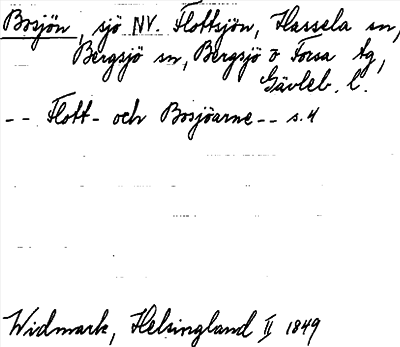 Bosjön, sjö NV. Flottsjön, Hassela sn,
Bergsjö sn, Bergsjö o Forsa tg,
Gävleb. l.
-- Flott- och Bosjöarne -- s. 4
Widmark, Helsingland II 1849